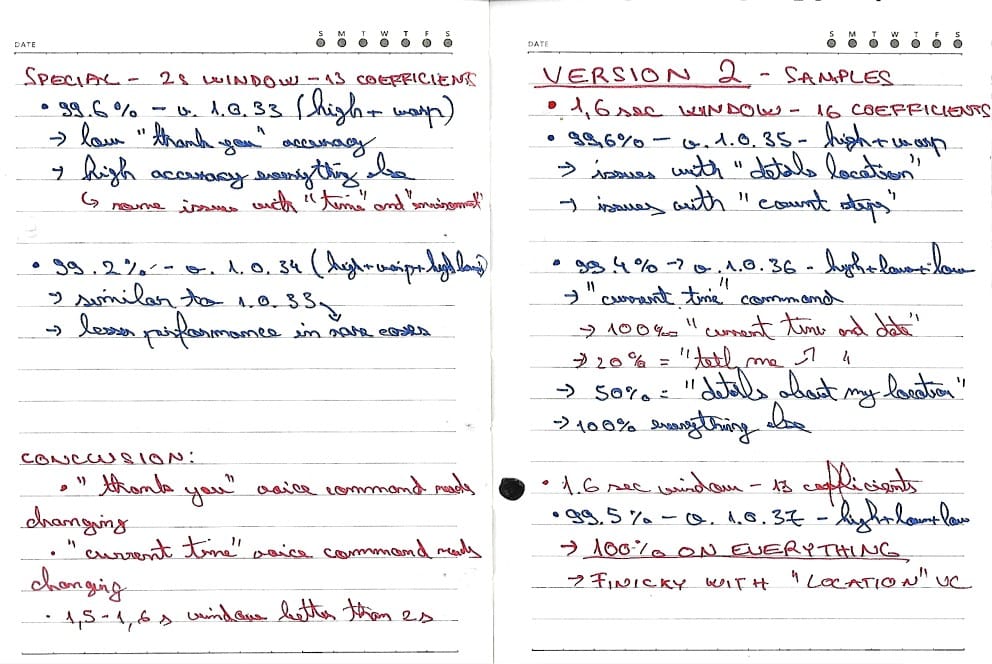 DATE S M T W T F S
SPECIAL - 2s WINDOW - 13 COEFFICIENTS
• 99.6% - v. 1.0.33 (high + warp)
→ low "thank you" accuracy
→ high accuracy everything else
↳ some issues with "time" and "environment"
• 99.2% - v. 1.0.34 (high+warp+high low)
→ similar to 1.0.33
→ lesser performance in rare cases
CONCLUSION:
• "thank you" voice command needs
changing
• "current time" voice command needs
changing
• 1,5-1,6 s window better than 2s
DATE S M T W T F S
VERSION 2 - SAMPLES
• 1,6 sec WINDOW - 16 COEFFICIENTS
• 99,6% - v. 1.0.35 - high + warp
→ issues with "details location"
→ issues with "count steps"
• 99.4% → v. 1.0.36 - high+low+low
→ "current time" command
→ 100% "current time and date"
→ 20% = "tell me ↗"
→ 50% = "details about my location"
→ 100% everything else
• 1.6 sec window - 13 coefficients
• 99.5% - v. 1.0.37 - high+low+low
→ 100% ON EVERYTHING
→ FINICKY WITH "LOCATION" VC